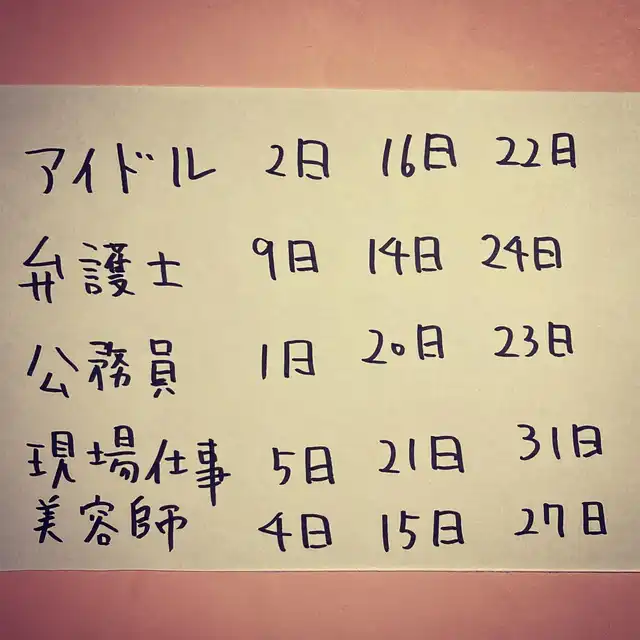 アイドル 2日 16日 22日
弁護士 9日 14日 24日
公務員 1日 20日 23日
現場仕事 5日 21日 31日
美容師 4日 15日 27日